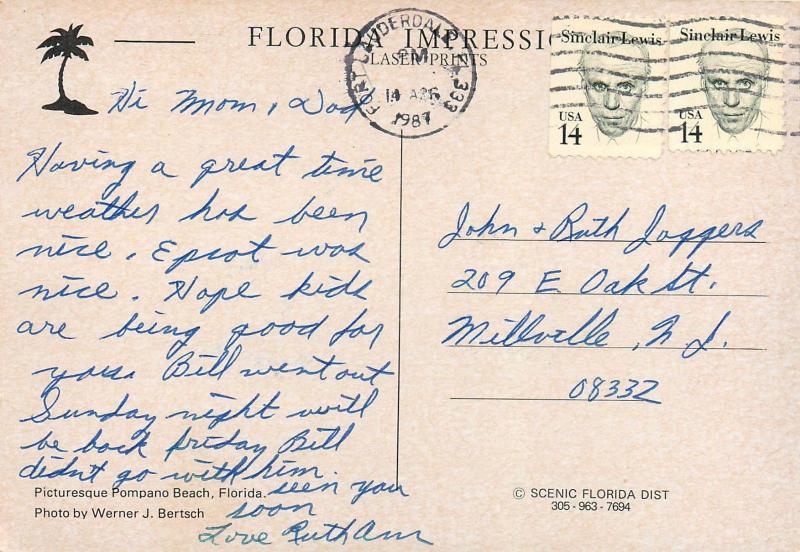 FLORIDA IMPRESSI
LASER PRINTS
FORT LAUDERDALE, FL 333
PM
14 APR
1987
Sinclair Lewis
USA
14
Sinclair Lewis
USA
14
Hi Mom & Dad
Having a great time
weather has been
nice. Epcot was
nice. Hope kids
are being good for
you. Bill went out
Sunday night will
be back friday Bill
didnt go with him.
seen you
soon
Love RuthAnn
John & Ruth Jaggers
209 E. Oak St.
Millville, N.J.
08332
Picturesque Pompano Beach, Florida.
Photo by Werner J. Bertsch
© SCENIC FLORIDA DIST
305-963-7694